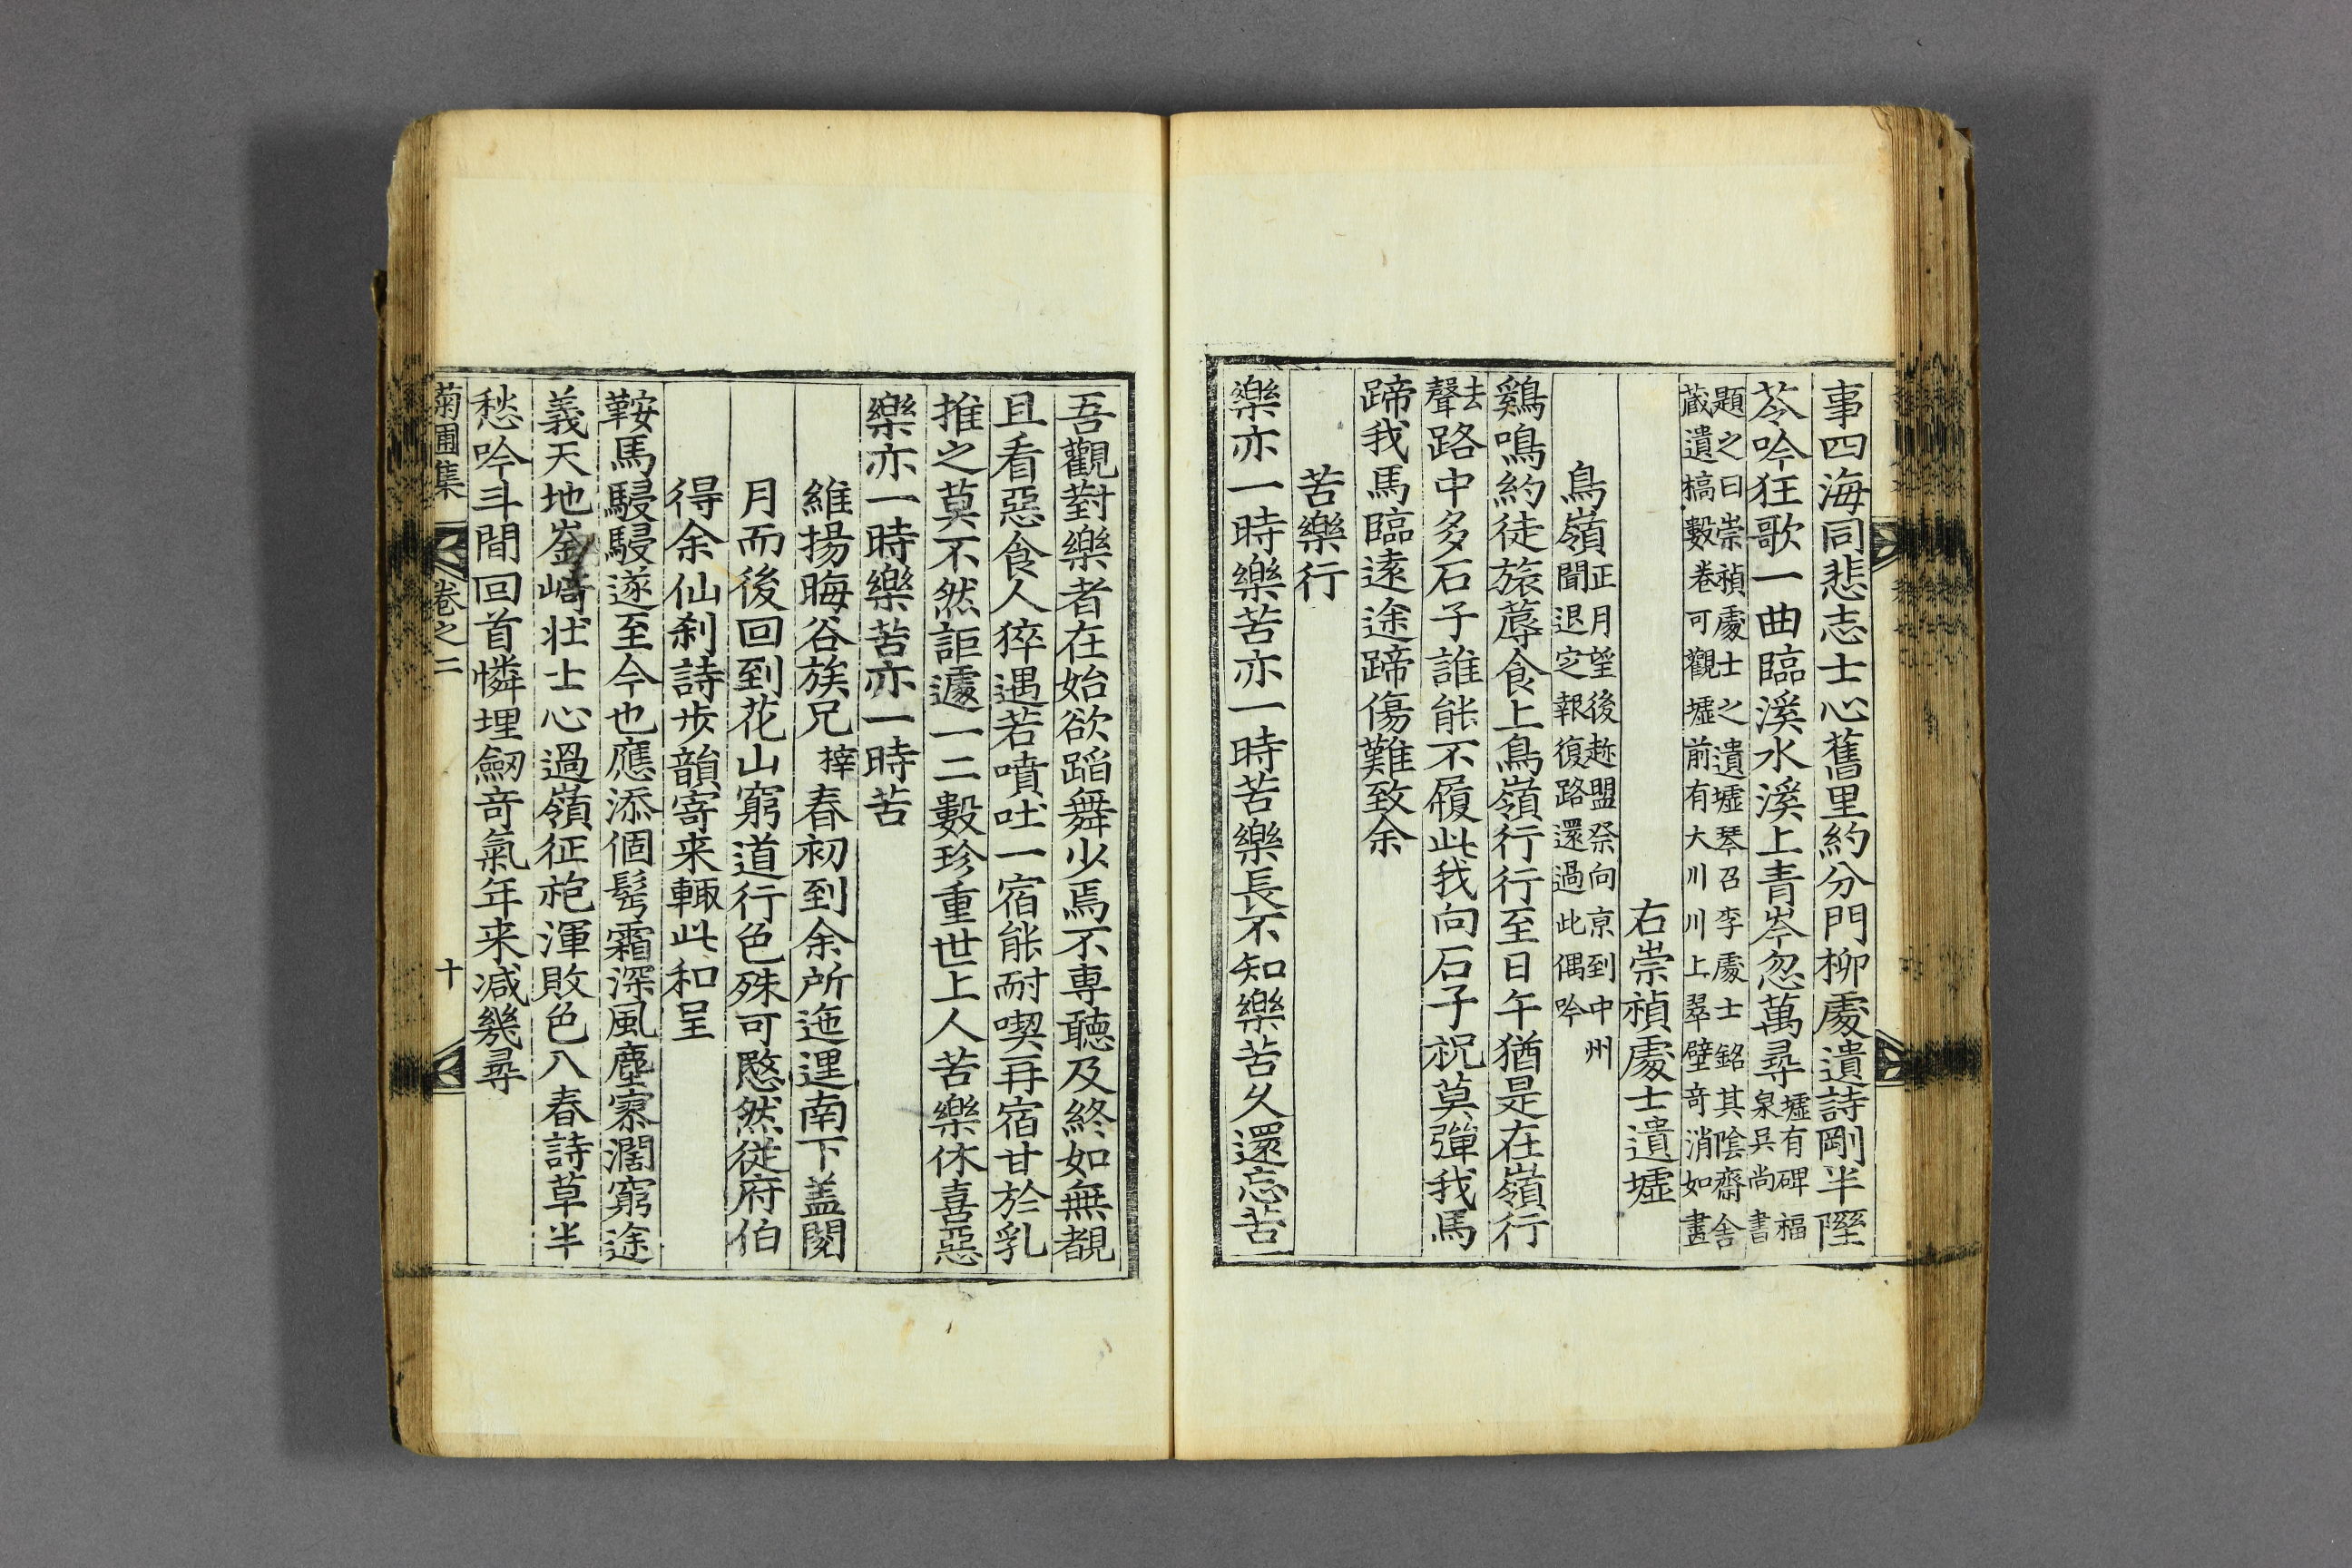 事四海同悲志士心舊里約分門柳處遺詩剛半陘
苓吟狂歌一曲臨溪水溪上青岑忽萬尋墟有碑福泉吳尚書
題之曰崇禎處士之遺墟琴召李處士銘其陰齋舍
蔵遺稿數卷可觀墟前有大川川上翠壁奇消如畫
右崇禎處士遺墟
鳥嶺正月望後趂盟祭向京到中州聞退定報復路還過此偶吟
鷄鳴約徒旅蓐食上鳥嶺行行至日午猶是在嶺行
去聲路中多石子誰能不履此我向石子祝莫彈我馬
蹄我馬臨遠途蹄傷難致余
苦樂行
樂亦一時樂苦亦一時苦樂長不知樂苦久還忘苦
吾觀對樂者在始欲蹈舞少焉不專聽及終如無覩
且看惡食人猝遇若噴吐一宿能耐喫再宿甘於乳
推之莫不然詎遽一二數珍重世上人苦樂休喜惡
樂亦一時樂苦亦一時苦
維揚晦谷族兄㨪春初到余所迤逕南下盖閱
月而後回到花山窮道行色殊可愍然從府伯
得余仙刹詩步韻寄来輙此和呈
鞍馬駸駸遂至今也應添個髩霜深風塵寥濶窮途
義天地崟崎壯士心過嶺征袍渾敗色入春詩草半
愁吟斗間回首憐埋劒竒氣年来减幾尋
菊圃集 卷之二 十